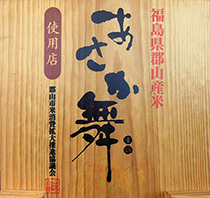 福島県郡山産米
あさか舞
まい
使用店
郡山市米消費拡大推進協議会